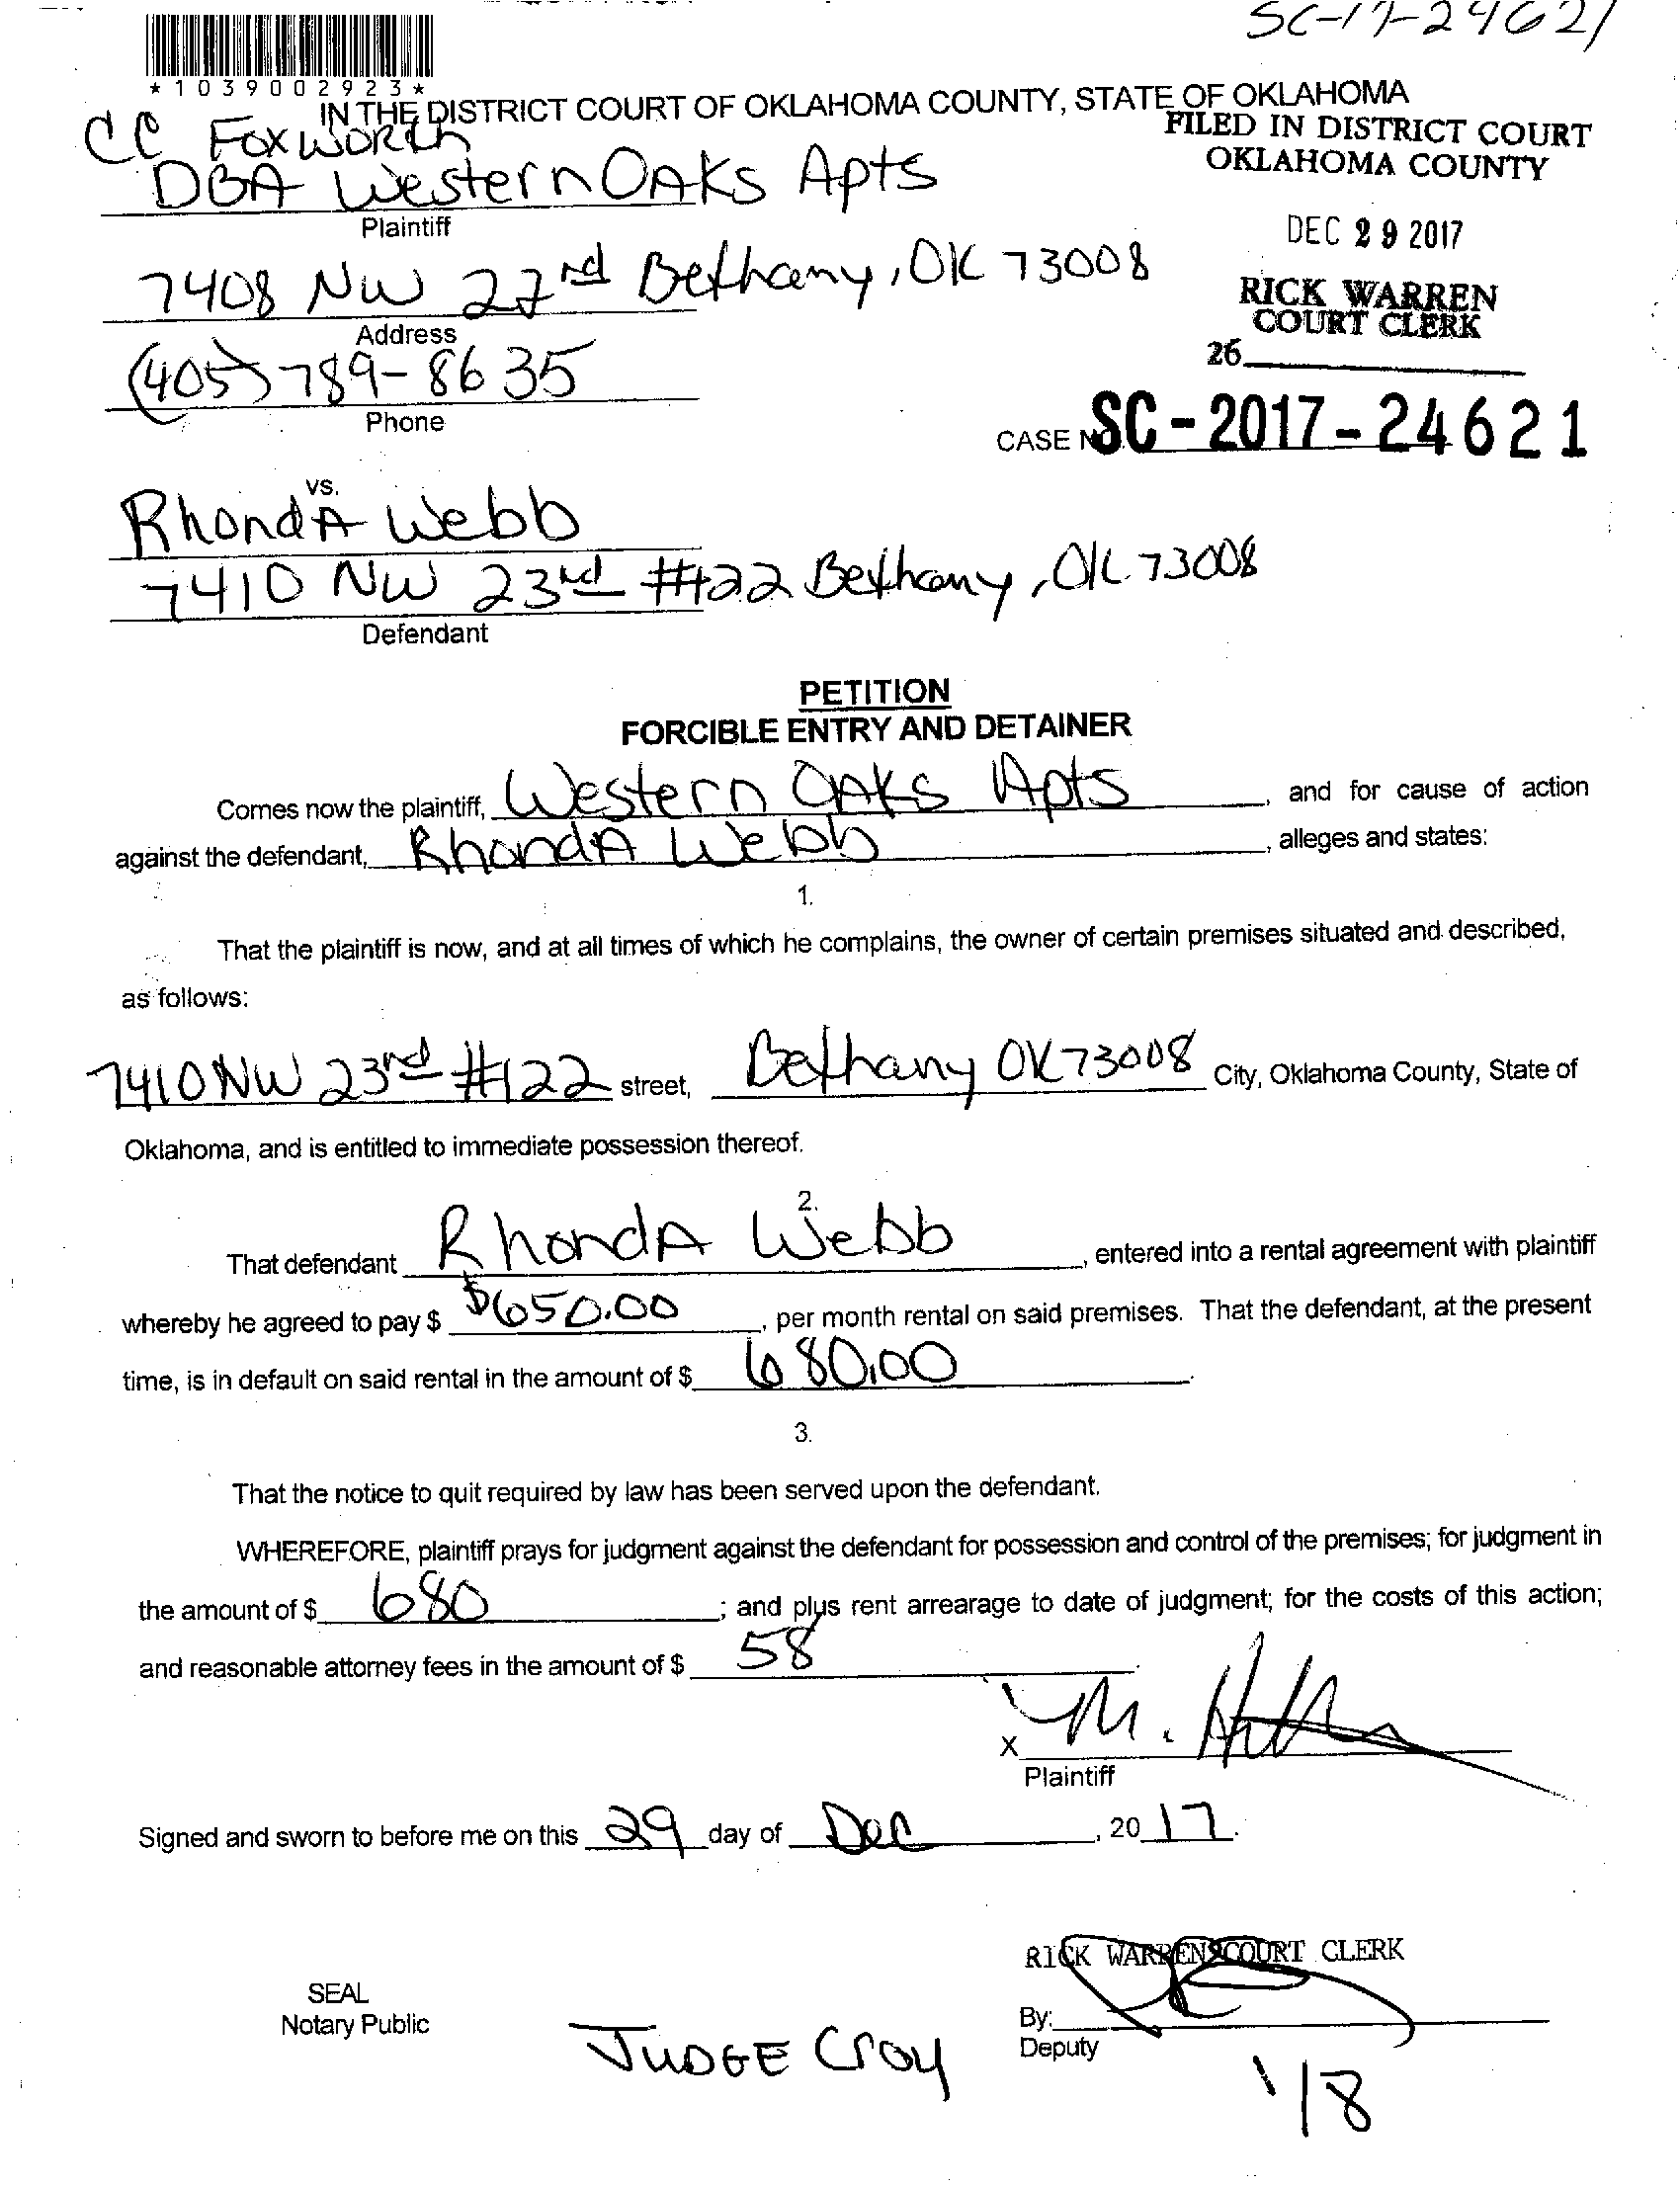 SC-17-24621
*1039002923*
IN THE DISTRICT COURT OF OKLAHOMA COUNTY, STATE OF OKLAHOMA
CC FoxWorth
FILED IN DISTRICT COURT
OKLAHOMA COUNTY
DBA Western OAKs Apts
Plaintiff
DEC 29 2017
7408 NW 27rd Bethany, OK 73008
Address
RICK WARREN
COURT CLERK
26
(405) 789-8635
Phone
CASE NO. SC-2017-24621
vs.
RhondA Webb
7410 NW 23rd #122 Bethany, OK 73008
Defendant
PETITION
FORCIBLE ENTRY AND DETAINER
Comes now the plaintiff, Western OAKs Apts, and for cause of action
against the defendant, RhondA Webb, alleges and states:
1.
That the plaintiff is now, and at all times of which he complains, the owner of certain premises situated and described,
as follows:
7410 NW 23rd #122 street, Bethany OK 73008 City, Oklahoma County, State of
Oklahoma, and is entitled to immediate possession thereof.
2.
That defendant RhondA Webb, entered into a rental agreement with plaintiff
whereby he agreed to pay $ $650.00, per month rental on said premises. That the defendant, at the present
time, is in default on said rental in the amount of $ 680.00.
3.
That the notice to quit required by law has been served upon the defendant.
WHEREFORE, plaintiff prays for judgment against the defendant for possession and control of the premises; for judgment in
the amount of $ 680; and plus rent arrearage to date of judgment; for the costs of this action;
and reasonable attorney fees in the amount of $ 58
X
Plaintiff
Signed and sworn to before me on this 29 day of Dec, 2017.
RICK WARREN COURT CLERK
SEAL
Notary Public
By:
Deputy
JUDGE Croy
1/8